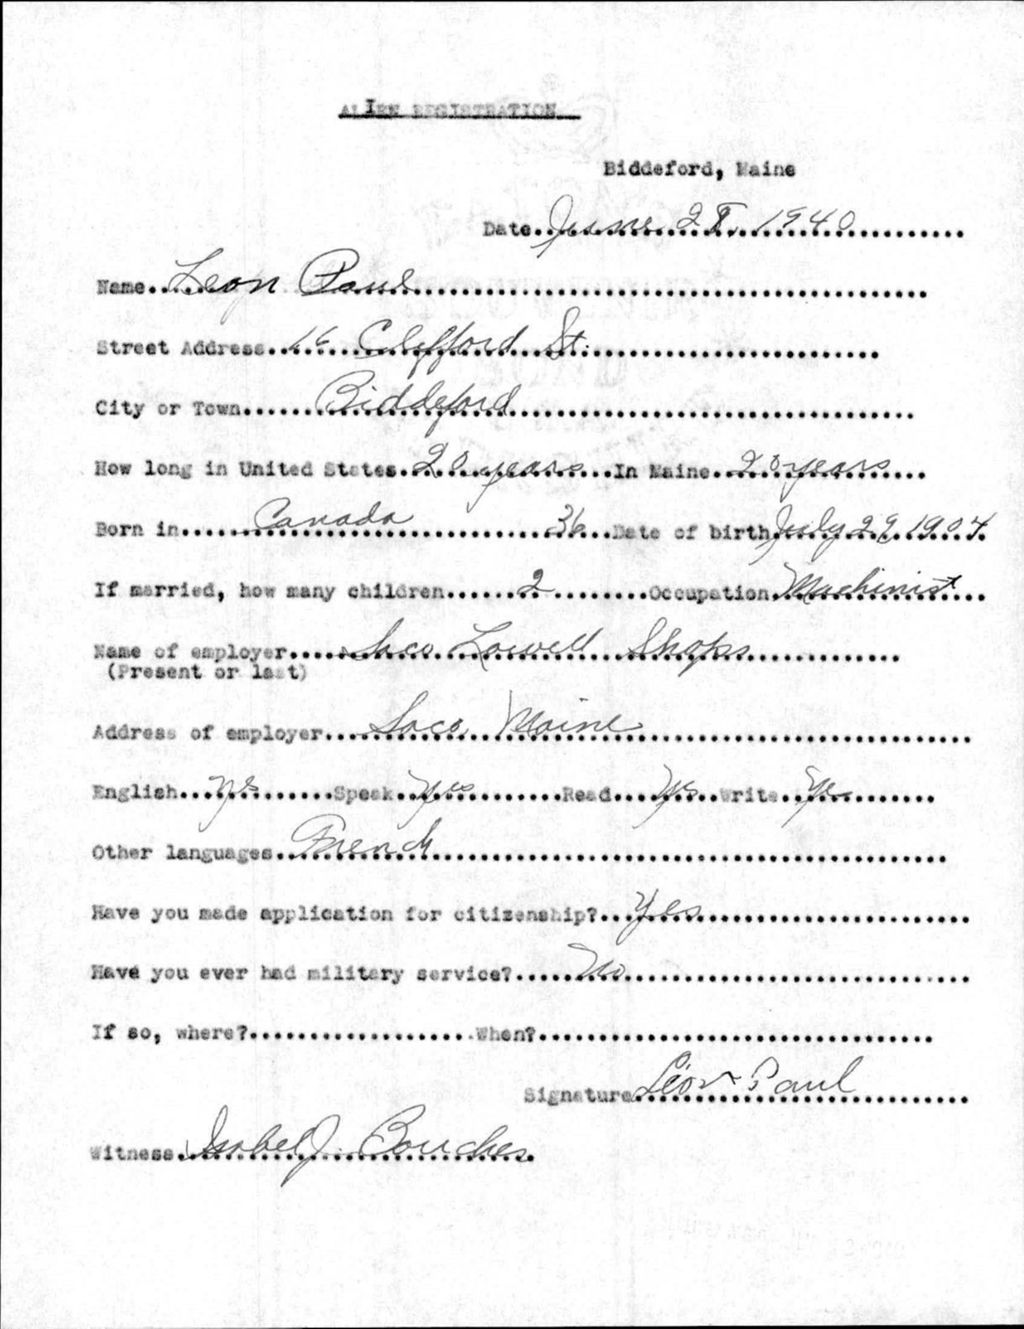 ALIEN REGISTRATION
Biddeford, Maine
Date..June 28, 1940
Name..Leon Paul
Street Address..16 Clifford St.
City or Town.....Biddeford
How long in United States..20 years...In Maine..20 years
Born in.....Canada 36...Date of birth July 29, 1904
If married, how many children......2........Occupation Machinist
Name of employer.....Saco Lowell Shops
(Present or last)
Address of employer...Saco, Maine
English...Yes.......Speak..Yes.......Read...Yes..Write..Yes
Other languages..French
Have you made application for citizenship?...Yes
Have you ever had military service?.....No
If so, where?...................When?...............................
Signature Léon Paul
Witness Isabel J.